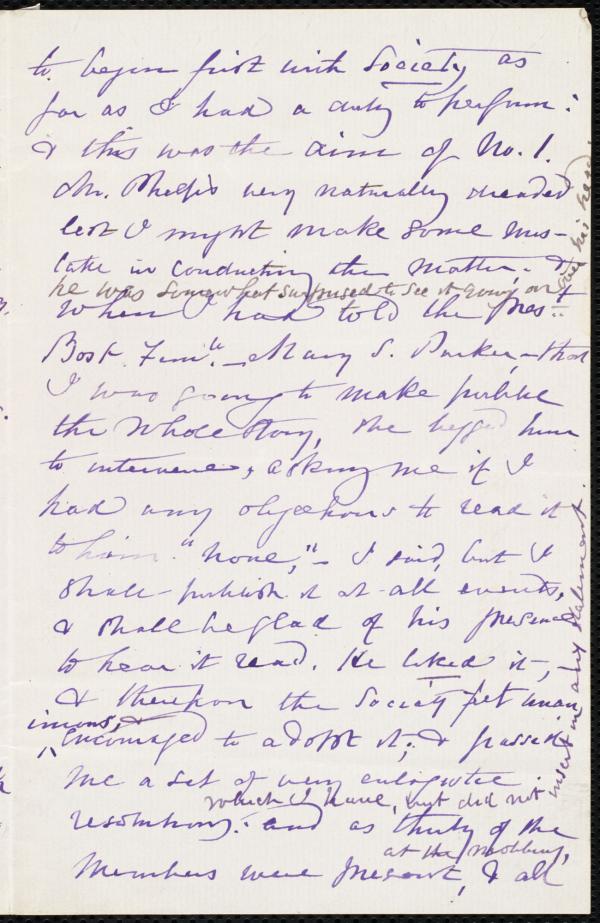 to begin first with Society as
far as I had a duty to perform:
& this was the aim of No. 1.
Mr. Phelps very naturally dreaded
lest I might make some mis-
take in conducting the matter, &
he was somewhat surprised to see it going on over his head.
When I had told the Prest
Bost. Fem." – Mary S. Parker, – that
I was going to make public
the whole story, she begged him
to intervene, asking me if I
had any objections to read it
to him. "None," – I said, but I
shall publish it at all events,
& shall be glad of his presence
to hear it read. He liked it, –
& thereupon the Society felt unan
imous, &
encouraged to adopt it; & passed
me a set of very eulogistic
which I have, but did not insert in any statement.
resolutions: and as thirty of the
at the meeting,
members were present, & all